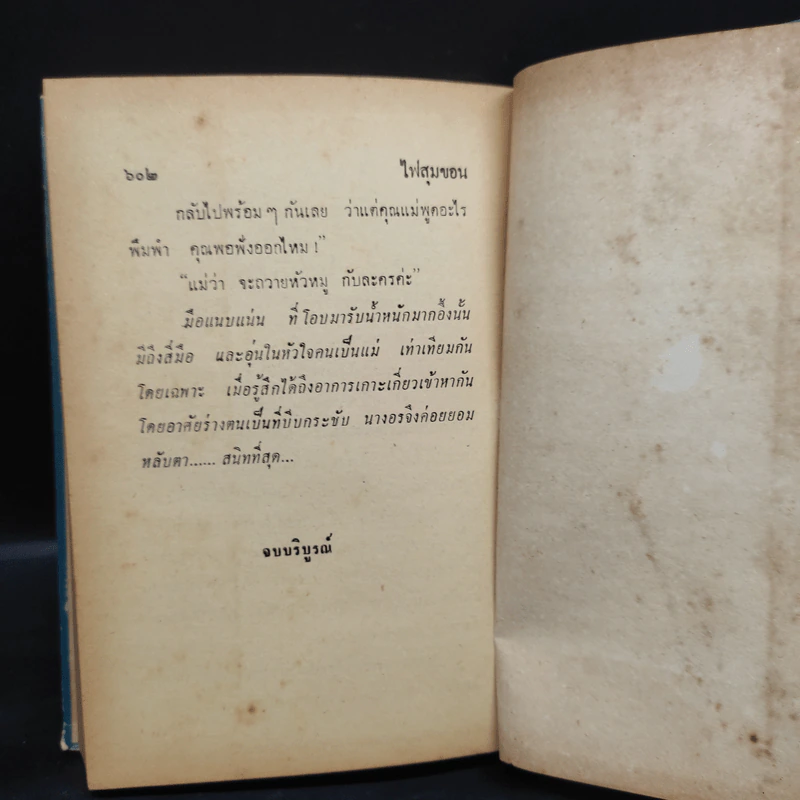 ๖๐๒ ไฟสุมขอน
กลับไปพร้อม ๆ กันเลย ว่าแต่คุณแม่พูดอะไร
พึมพำ คุณพอฟังออกไหม !"
"แม่ว่า จะถวายหัวหมู กับละครค่ะ"
มือแนบแน่น ที่โอบมารับน้ำหนักมากอึ้งนั้น
มีถึงสี่มือ และอุ่นในหัวใจคนเป็นแม่ เท่าเทียมกัน
โดยเฉพาะ เมื่อรู้สึกได้ถึงอาการเกาะเกี่ยวเข้าหากัน
โดยอาศัยร่างตนเป็นที่บีบกระชับ นางอรจึงค่อยยอม
หลับตา...... สนิทที่สุด...
จบบริบูรณ์